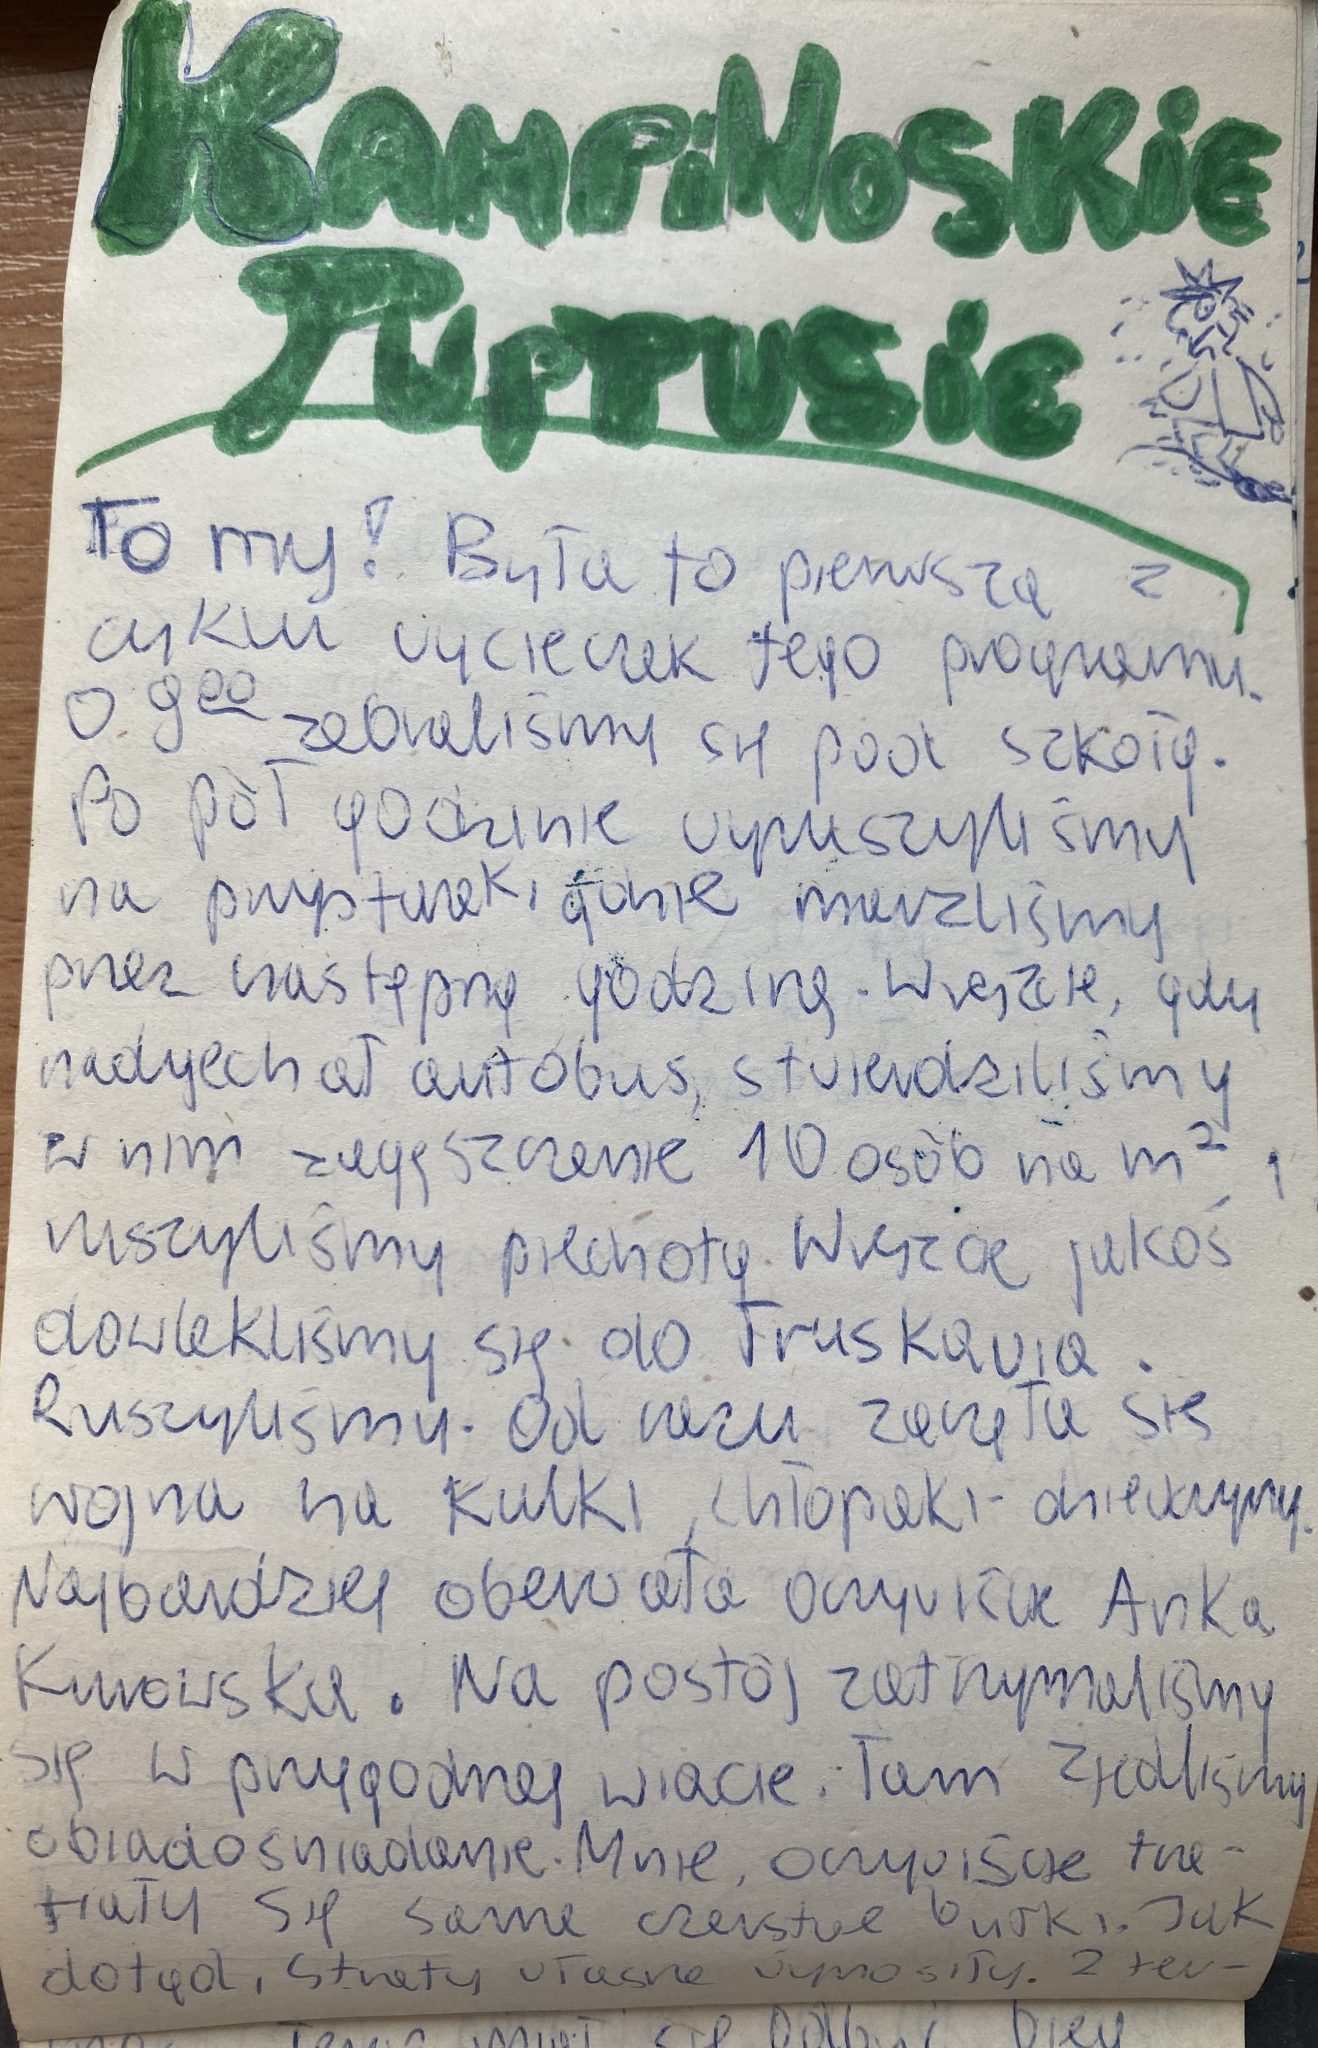 KAMPiNOSKiE
TUPTUSiE
To my! Była to pierwszą z
cyklu wycieczek tego programu.
O 9⁰⁰ zebraliśmy się pod szkołą.
Po pół godzinie wyruszyliśmy
na przystanek, gdzie marzliśmy
przez następną godzinę. Wreszcie, gdy
nadjechał autobus, stwierdziliśmy
w nim zagęszczenie 10 osób na m², i
ruszyliśmy piechotą. Wreszcie jakoś
dowlekliśmy się do Truskawia.
Ruszyliśmy. Od razu zaczęła się
wojna na kulki, chłopaki-dziewczyny.
Najbardziej oberwała oczywiście Anka
Kurowska. Na postój zatrzymaliśmy
się w przygodnej wiacie. Tam zjedliśmy
obiadośniadanie. Mnie, oczywiście tra-
fiały się same czerstwe bułki. Jak
dotąd, straty własne wynosiły. 2 ter-
się odbyć bieg